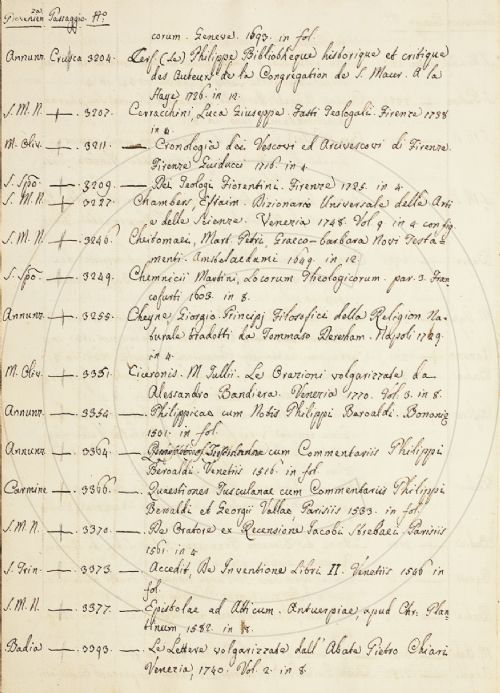 Provenienza. Passaggio. N.o
corum. Geneve. 1693. in fol.
Annunz. Crusca 3204. Cerf (Le) Philippe Bibliothèque historique et critique
des Auteurs de la Congregation de S. Maur. A la
Haye 1726 in 12.
S. M. N. — 3207. Cerracchini, Luca Giuseppe. Fasti Teologali. Firenze 1738
in 4.
M. Oliv. — 3211. — Cronologia dei Vescovi ed Arcivescovi di Firenze.
Firenze Guiducci 1716. in 4
S. Spo — 3209. — Dei Teologi Fiorentini. Firenze 1725. in 4.
S. M. N. — 3227. Chambers, Efraim. Dizionario Universale delle Arti
e delle Scienze. Venezia 1748. Vol. 9. in 4 con fig.
S. M. N. — 3246. Cheitomaei, Mart. Petri, Graeco-barbara Novi Testa=
menti. Amstelaedami 1649. in 12.
S. Spo — 3249. Chemnicii Martini, Locorum Theologicorum. par. 3. Fran
cofurti 1603. in 8.
Annunz. — 3255. Cheyne, Giorgio. Principj Filosofici della Religion Na=
turale tradotti da Tommaso Dereham. Napoli 1729.
in 4.
M. Oliv. — 3351. Ciceronis. M. Tullii. Le Orazioni volgarizzate da
Alessandro Bandiera. Venezia 1770. Vol. 3. in 8.
Annunz. — 3354. — Philippicae cum Notis Philippi Baroaldi. Bononiae
1501. in fol.
Annunz. — 3364. — cum Commentariis Philippi
Beroaldi. Venetiis 1516 in fol.
Carmine — 3366. — Quaestiones Tusculanae cum Commentariis Philippi
Beroaldi et Georgii Vallae, Parisiis 1533. in fol.
S. M. N. — 3370. — De Oratore ex Recensione Jacobi Strebaei Parisiis
1561. in 4
S. Trin. — 3373. — Accedit, De Inventione Libri II. Venetiis 1546 in
fol.
S. M. N. — 3377. — Epistolae ad Atticum. Antuerpiae, apud Chr. Plan
tinum 1582. in
Badia — 3393. — Le Lettere volgarizzate dall' Abate Pietro Chiari
Venezia, 1740. Vol. 2. in 8.